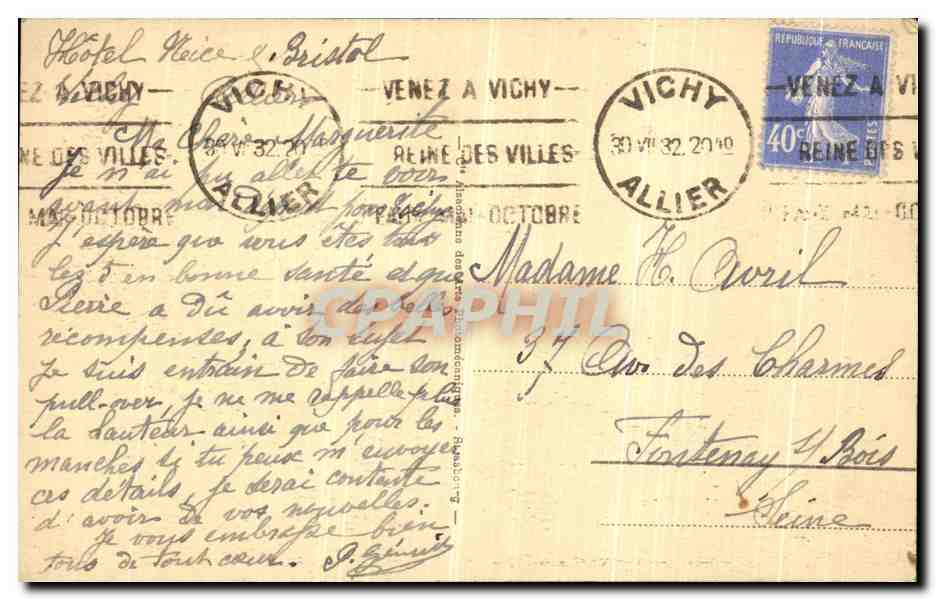 Hôtel Neice & Bristol
Vichy
Ma Chère Marguerite
Je n'ai pu aller te voir
avant mon départ pour Vichy
J'espère que vous êtes tous
les 5 en bonne santé et que
Pierre a dû avoir des belles
récompenses, à son sujet
Je suis entrain de faire son
pull-over, je ne me rappelle plus
la hauteur ainsi que pour les
manches si tu peux m'envoyer
ces détails, je serai contente
d'avoir de vos nouvelles.
Je vous embrasse bien
tous de tout cœur. P.
Cie Alsacienne des Arts Photomécaniques. - Strasbourg
EZ A VICHY
NE DES VILLES
MAI-OCTOBRE
VICHY
30 VII 32. 20
ALLIER
VENEZ A VICHY
REINE DES VILLES
MAI-OCTOBRE
VICHY
30 VII 32. 20
ALLIER
VENEZ A VI
REINE DES V
REPUBLIQUE FRANÇAISE
40c
POSTES
Madame H. Avril
37 Av. des Charmes
Fontenay s/ Bois
Seine
CPAPHIL